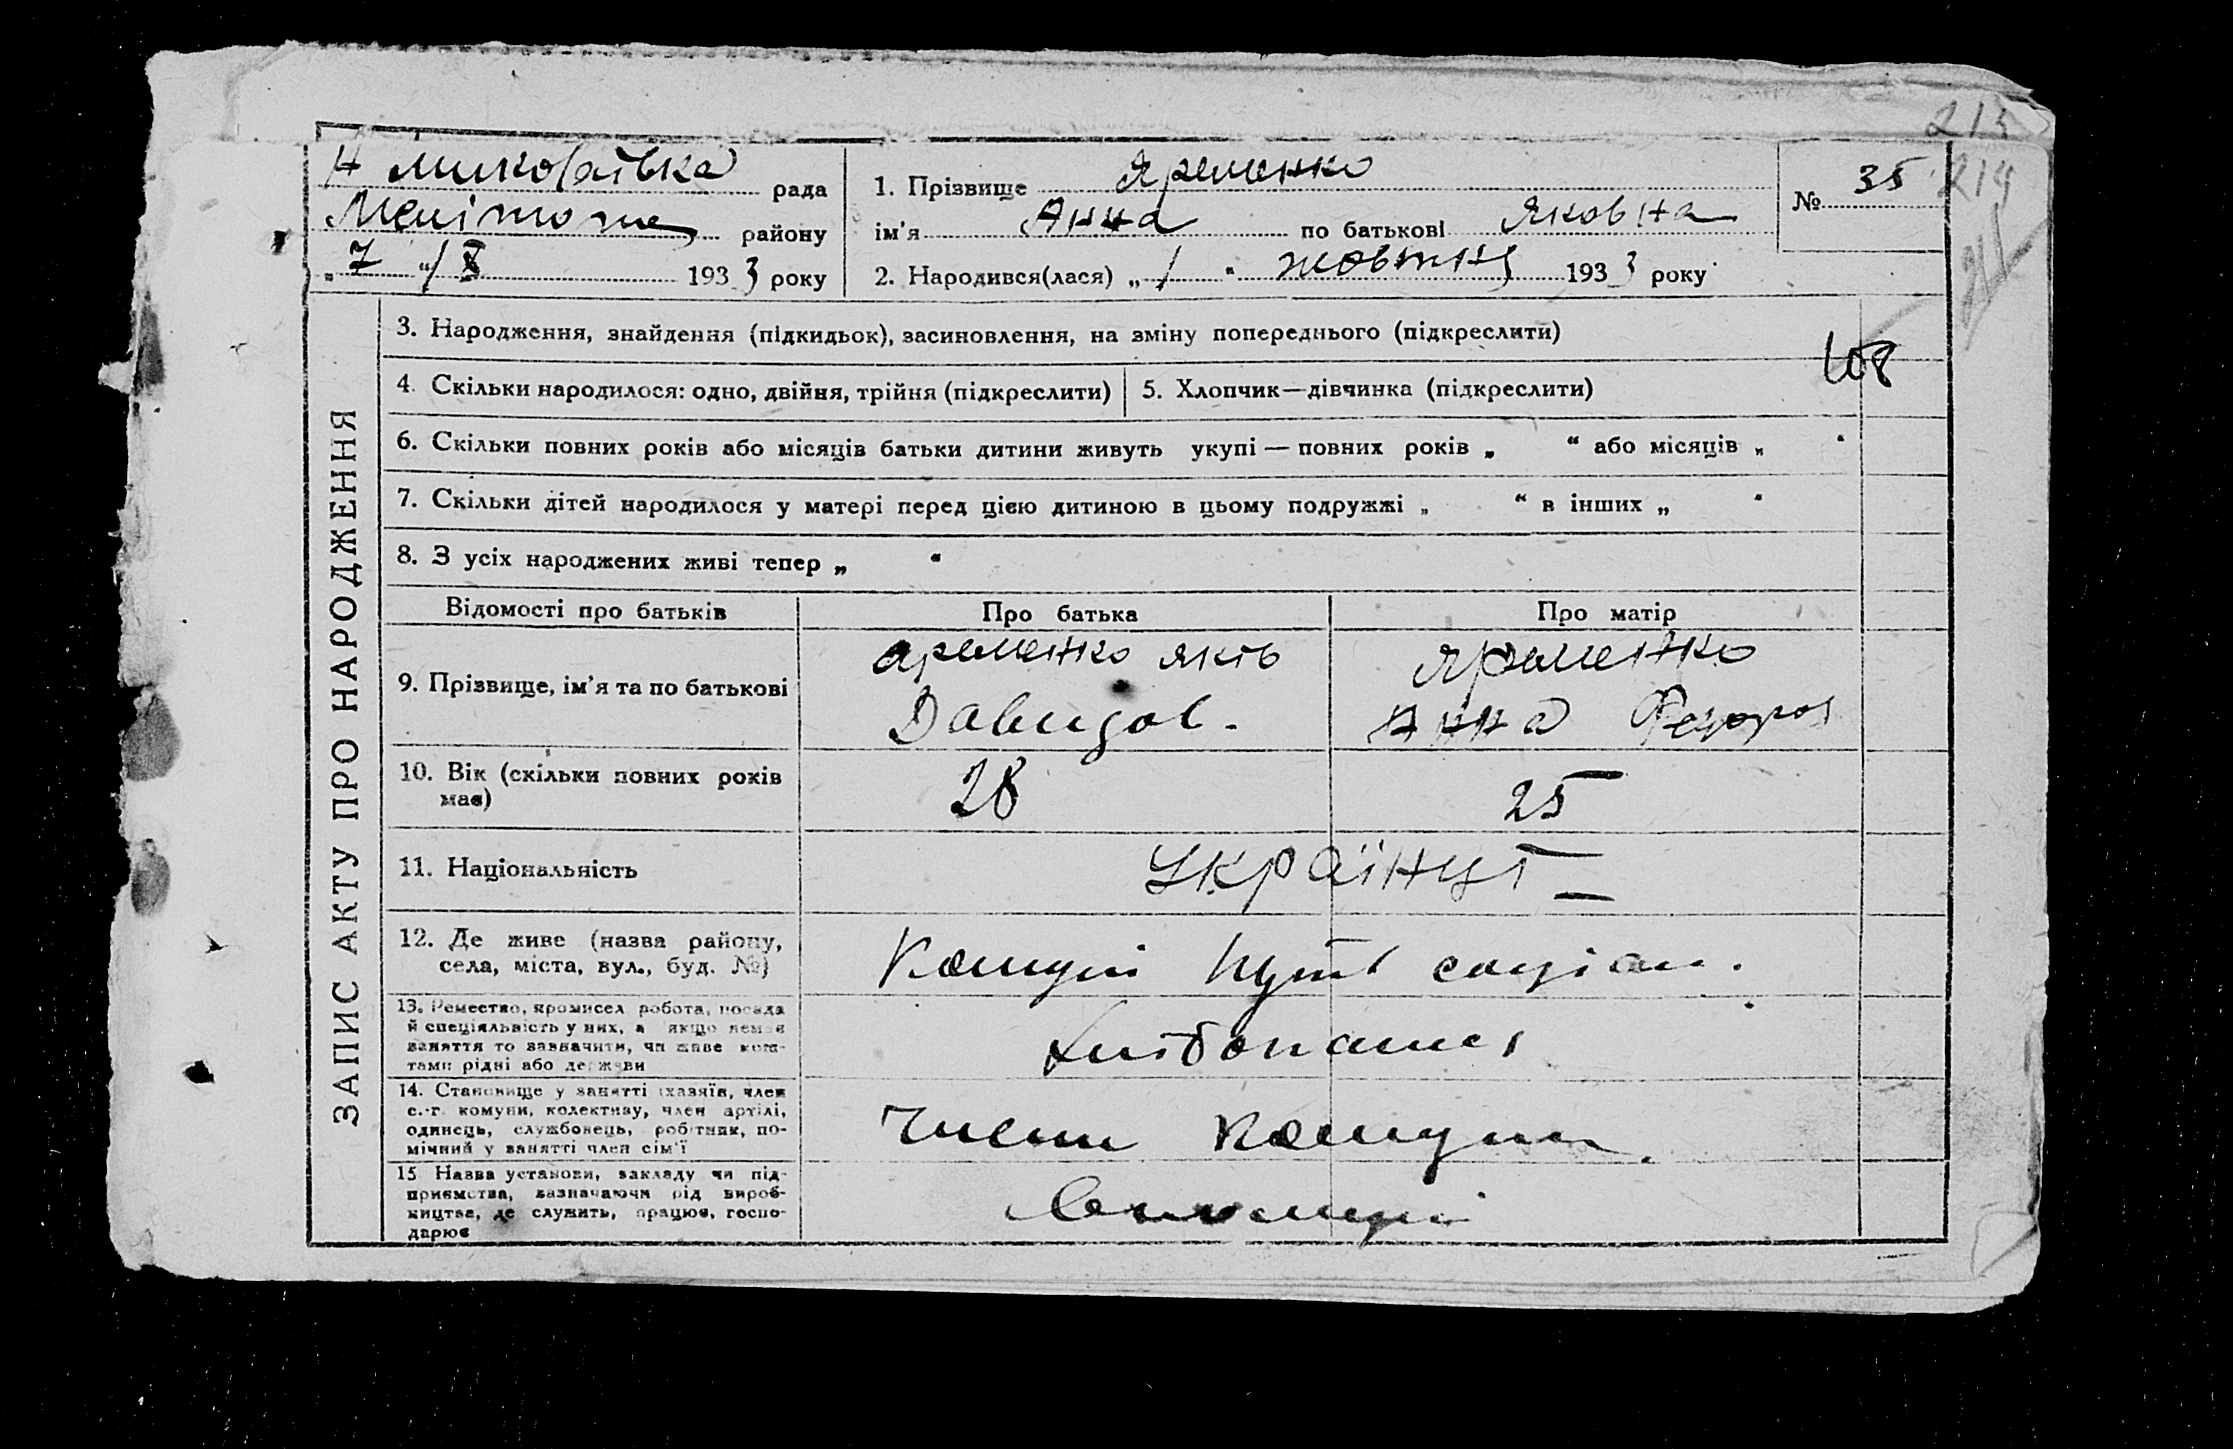 215
Н Миколаївка рада
Мелітоп району
„ 7 “ / X 1933 року
1. Прізвище Яременко
ім’я Анна по батькові Яковна
2. Народився(лася) „ 1 “ жовтня 1933 року
№ 35
214
108
ЗАПИС АКТУ ПРО НАРОДЖЕННЯ
3. Народження, знайдення (підкидьок), засиновлення, на зміну попереднього (підкреслити)
4. Скільки народилося: одно, двійня, трійня (підкреслити)
5. Хлопчик—дівчинка (підкреслити)
6. Скільки повних років або місяців батьки дитини живуть укупі — повних років „ “ або місяців „ “
7. Скільки дітей народилося у матері перед цією дитиною в цьому подружжі „ “ в інших „ “
8. З усіх народжених живі тепер „ “
Відомості про батьків
Про батька
Про матір
9. Прізвище, ім’я та по батькові
Яременко Яків
Давидов.
Яременко
Анна Федоров
10. Вік (скільки повних років
має)
28
25
11. Національність
Українці
12. Де живе (назва району,
села, міста, вул., буд. №)
Комуні Путь соціал.
13. Ремество, промисел робота, посада
й спеціяльність у них, а якщо немає
заняття то зазначити, чи живе кош-
тами рідні або держави
Хлібопашці
14. Становище у занятті (хазяїн, член
с.-г. комуни, колективу, член артілі,
одинець, службовець, робітник, по-
мічний у занятті член сім’ї
Члени комуни
15 Назва установи, закладу чи під-
приємства, зазначаючи рід вироб-
ництва, де служить, працює, госпо-
дарює